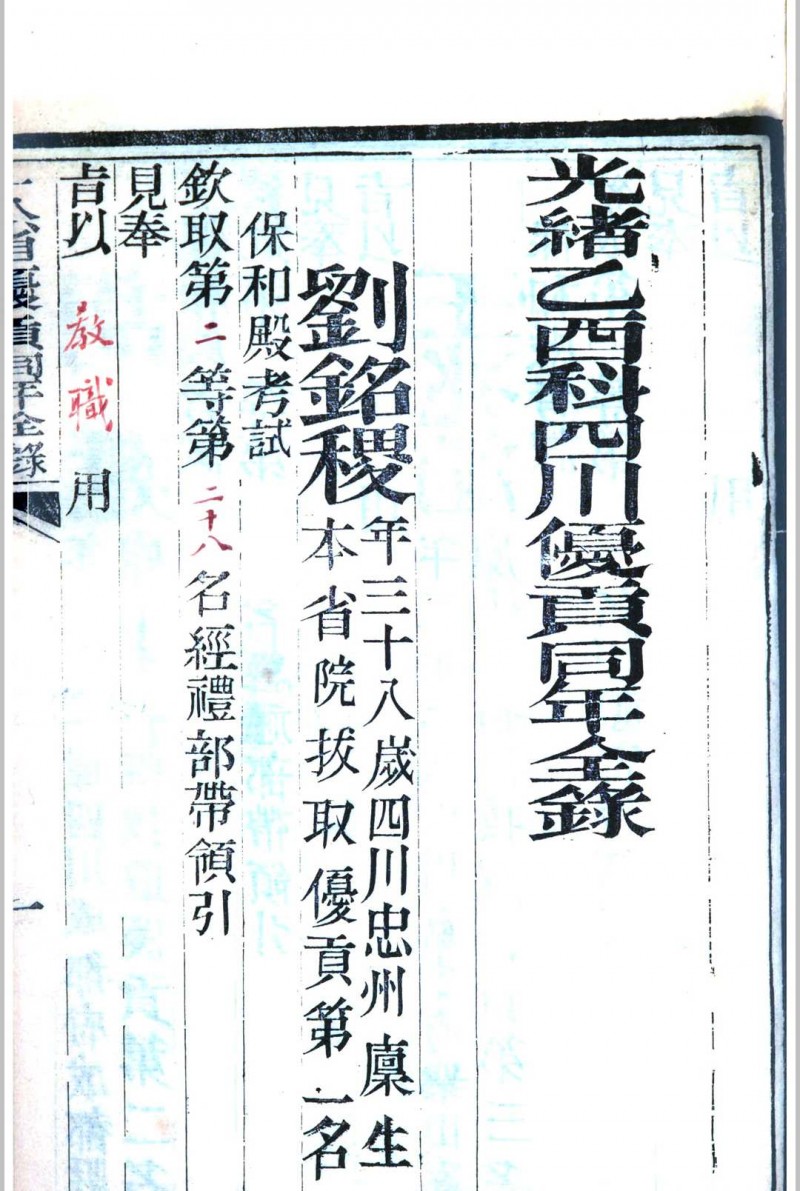 光緒乙酉科四川優貢同年全錄
劉銘稷
年三十八歲四川忠州廩生
本省院拔取優貢第一名
保和殿考試
欽取第二等第二十八名經禮部帶領引
見奉
旨以教職用
省優貢同年全錄
一